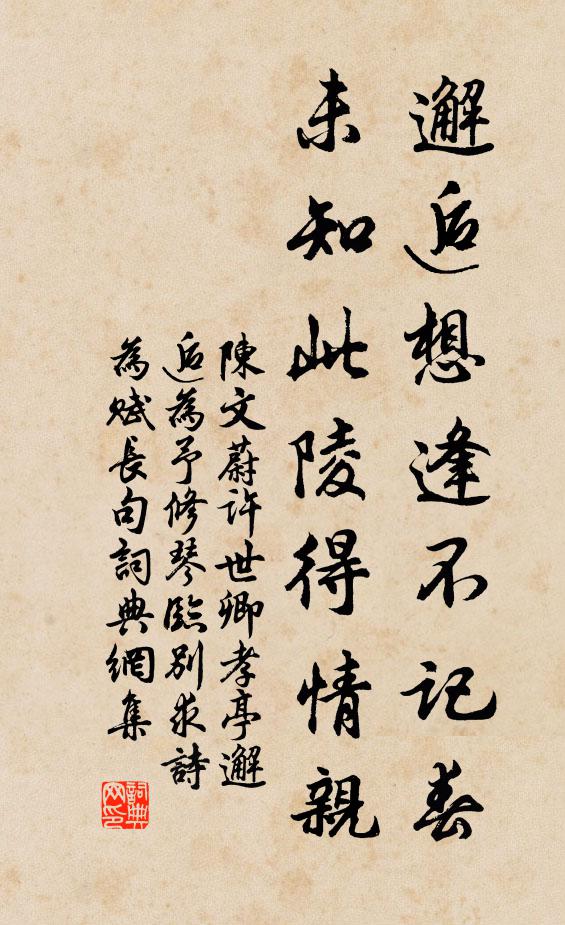 邂逅想逢不记春
未知此陵得情親
陳文蔚许世卿孝亭邂
逅為予修琴臨别求詩
為赋長句詞典網集
詞典
网印